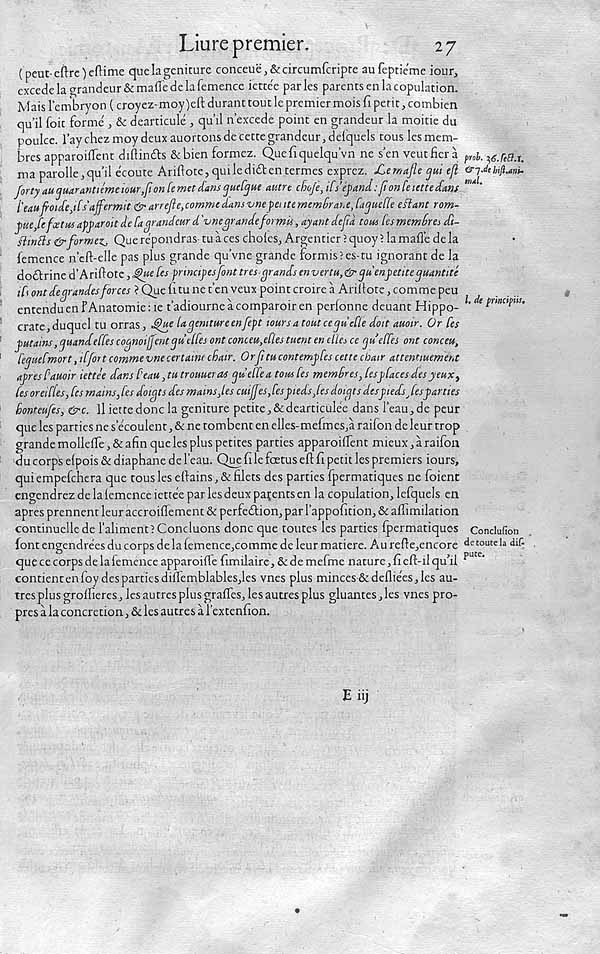 Liure premier. 27
(peut-eſtre) eſtime que la geniture conceuë, & circumſcripte au ſeptiéme iour,
excede la grandeur & maſſe de la ſemence iettée par les parents en la copulation.
Mais l'embryon (croyez-moy) eſt durant tout le premier mois ſi petit, combien
qu'il ſoit formé, & dearticulé, qu'il n'excede point en grandeur la moitie du
poulce. I'ay chez moy deux auortons de cette grandeur, deſquels tous les mem-
bres apparoiſſent diſtincts & bien formez. Que ſi quelqu'vn ne s'en veut fier à
ma parolle, qu'il écoute Ariſtote, qui le dict en termes exprez. Le maſle qui eſt
ſorty au quarantiéme iour, ſi on le met dans quelque autre choſe, il s'épand: ſi on le iette dans
l'eau froide, il s'affermit & arreſte, comme dans vne petite membrane, laquelle eſtant rom-
pue, le fœtus apparoit de la grandeur d'vne grande formis, ayant deſià tous les membres di-
ſtincts & formez. Que repondras-tu à ces choſes, Argentier? quoy? la maſſe de la
ſemence n'eſt-elle pas plus grande qu'vne grande formis? es-tu ignorant de la
doctrine d'Ariſtote, Que les principes ſont tres-grands en vertu, & qu'en petite quantité
ils ont de grandes forces? Que ſi tu ne t'en veux point croire à Ariſtote, comme peu
entendu en l'Anatomie: ie t'adiourne à comparoir en perſonne deuant Hippo-
crate, duquel tu orras, Que la geniture en ſept iours a tout ce qu'elle doit auoir. Or les
putains, quand elles cognoiſſent qu'elles ont conceu, elles tuent en elles ce qu'elles ont conceu,
lequel mort, il ſort comme vne certaine chair. Or ſi tu contemples cette chair attentiuement
apres l'auoir iettée dans l'eau, tu trouueras qu'elle a tous les membres, les places des yeux,
les oreilles, les mains, les doigts des mains, les cuiſſes, les pieds, les doigts des pieds, les parties
honteuſes, &c. Il iette donc la geniture petite, & dearticulée dans l'eau, de peur
que les parties ne s'écoulent, & ne tombent en elles-meſmes, à raiſon de leur trop
grande molleſſe, & afin que les plus petites parties apparoiſſent mieux, à raiſon
du corps eſpois & diaphane de l'eau. Que ſi le fœtus eſt ſi petit les premiers iours,
qui empeſchera que tous les eſtains, & filets des parties ſpermatiques ne ſoient
engendrez de la ſemence iettée par les deux parents en la copulation, leſquels en
apres prennent leur accroiſſement & perfection, par l'appoſition, & aſſimilation
continuelle de l'aliment? Concluons donc que toutes les parties ſpermatiques
ſont engendrées du corps de la ſemence, comme de leur matiere. Au reſte, encore
que ce corps de la ſemence apparoiſſe ſimilaire, & de meſme nature, ſi eſt-il qu'il
contient en ſoy des parties diſſemblables, les vnes plus minces & deſliées, les au-
tres plus groſſieres, les autres plus graſſes, les autres plus gluantes, les vnes pro-
pres à la concretion, & les autres à l'extenſion.
prob. 36. ſect. 1.
& 7. de hiſt. ani-
mal.
l. de principiis.
Concluſion
de toute la diſ-
pute.
E iij